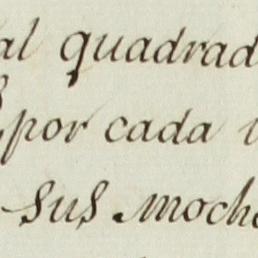 al quadrad
por cada
sus moch